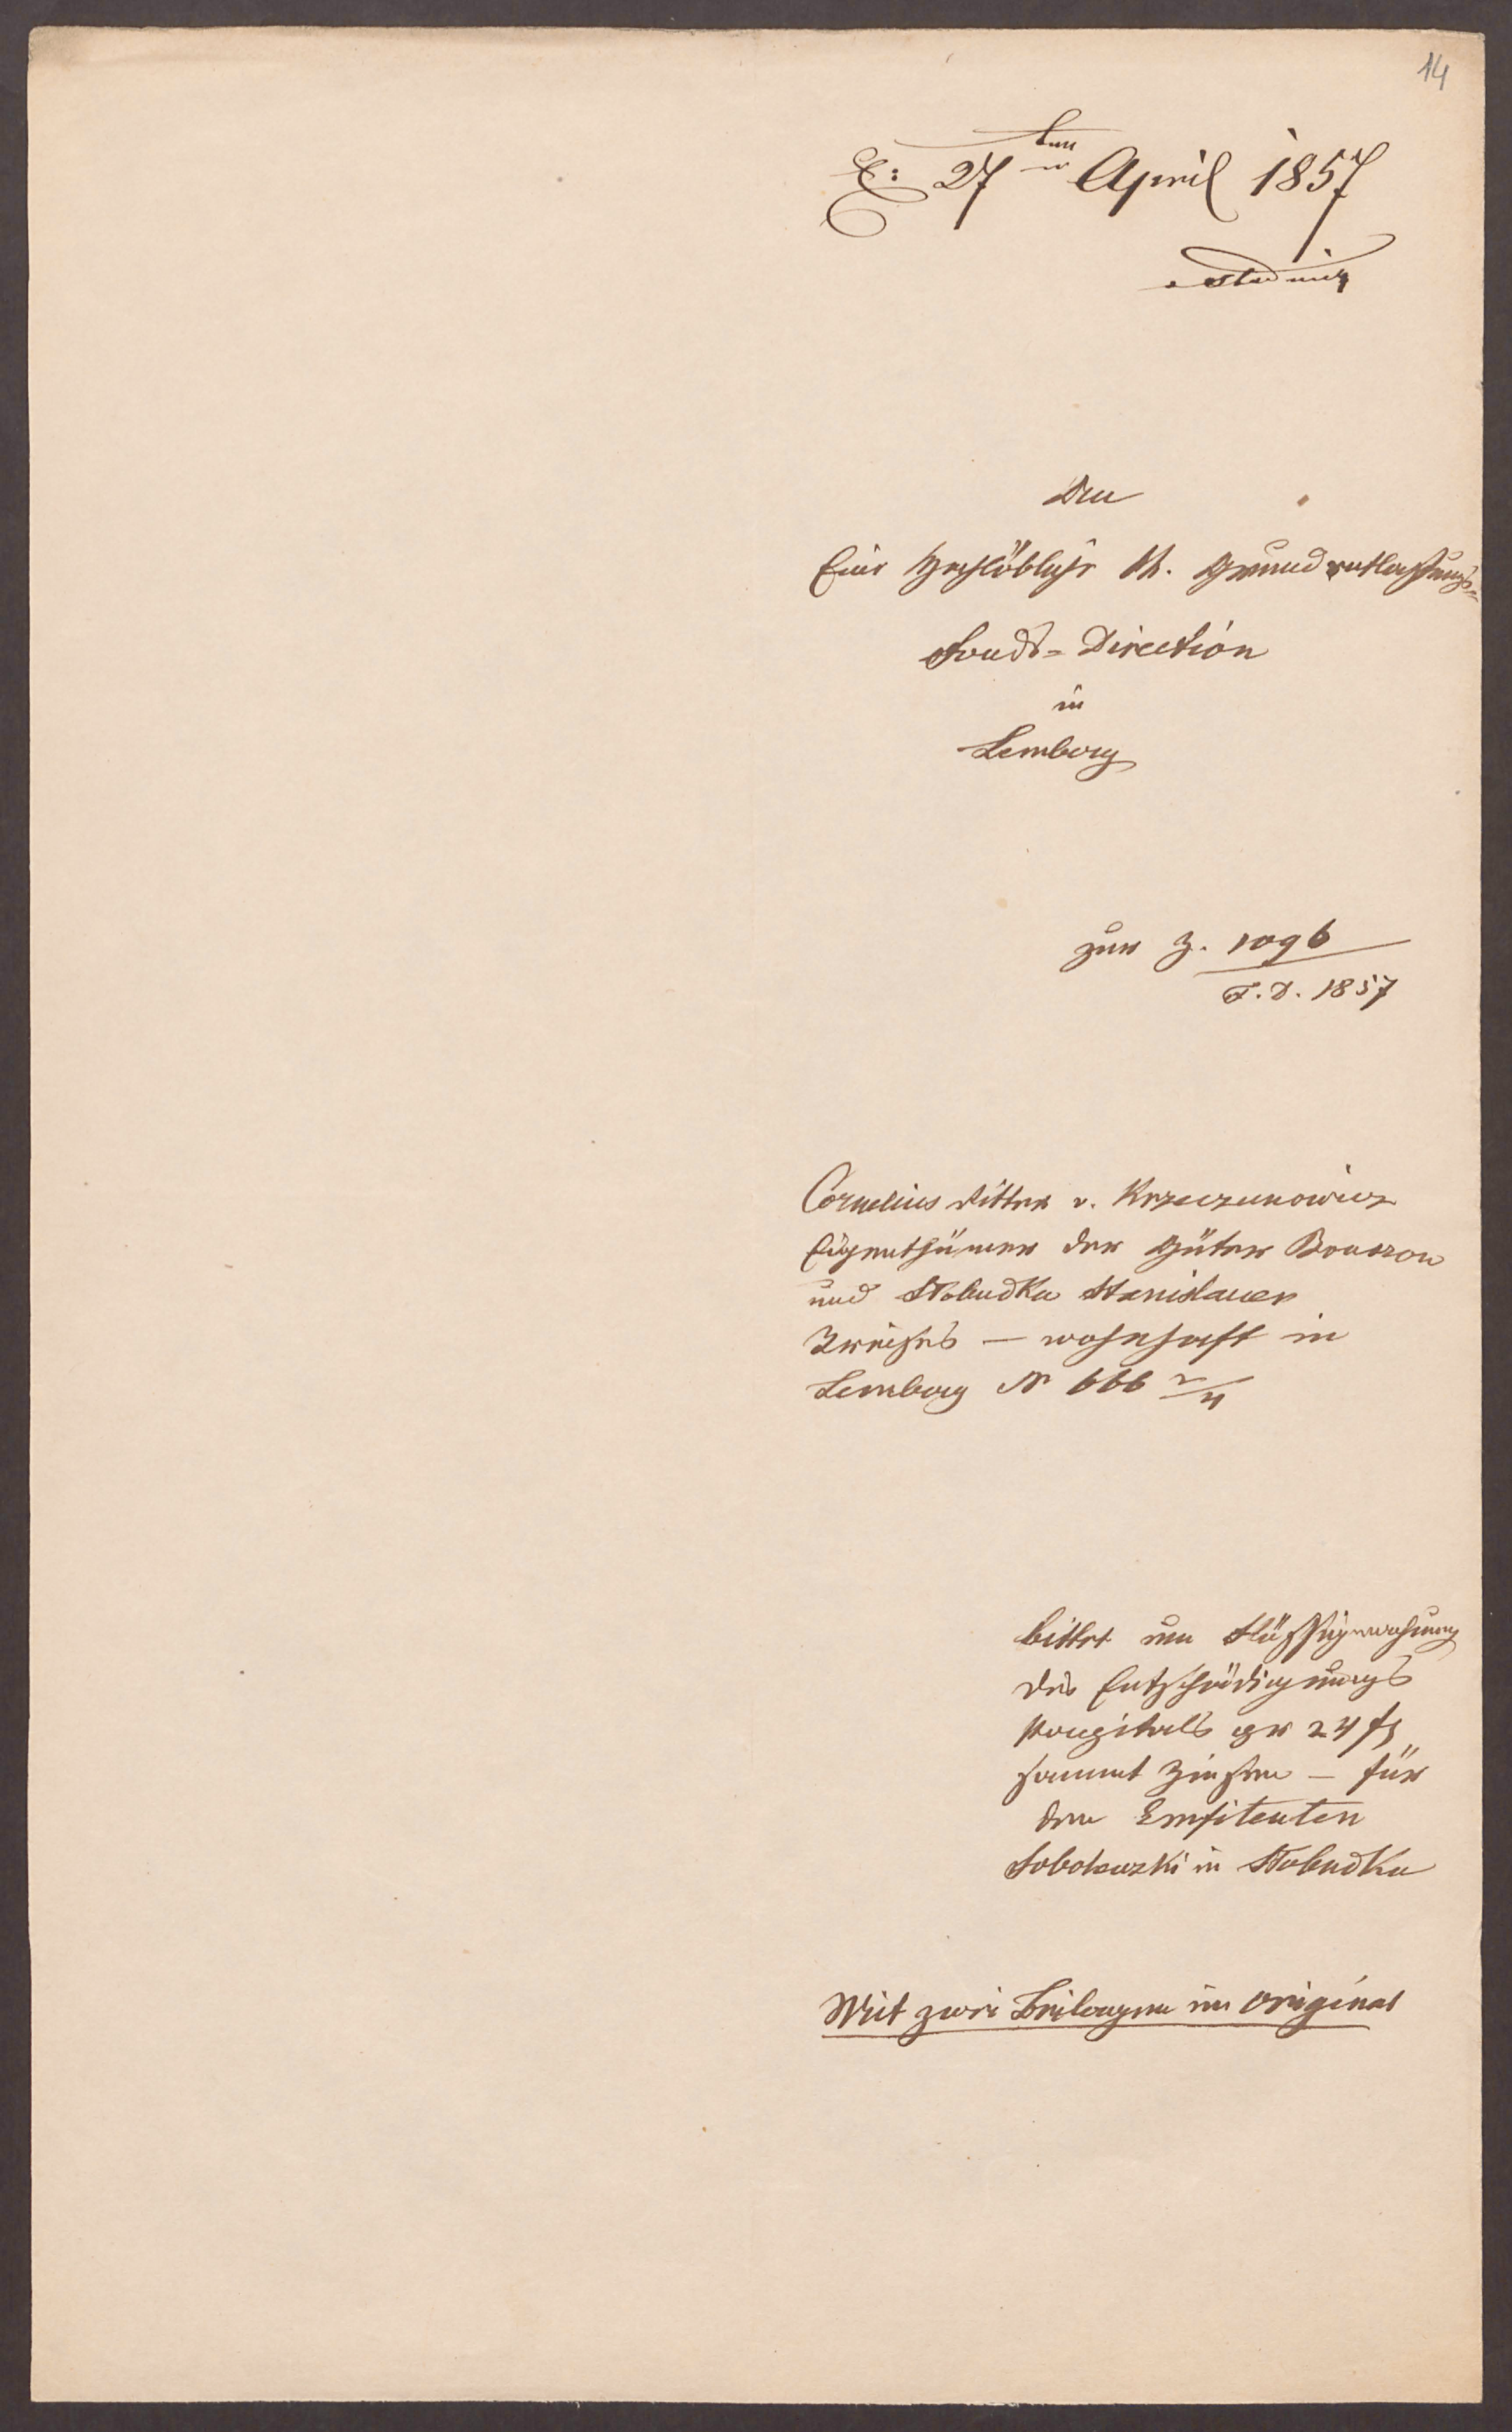 14
E: 27ten April 1857
An
Eine hochlöbliche kk. Grundentlastungs-
Fonds-Direction
in
Lemberg
zur Z. 1096
F.D. 1857
Cornelius Ritter v. Krzeczunowicz
Eigenthümer der Güter Bouszow
und Słobudka Stanislauer
Kreises — wohnhaft in
Lemberg N 666 2/4
bittet um Flüssigmachung
des Entschädigungs
Kapitals per 24 fl
sammt Zinsen — für
den Emfiteuten
in Słobudka
Mit zwei Beilagen im Original